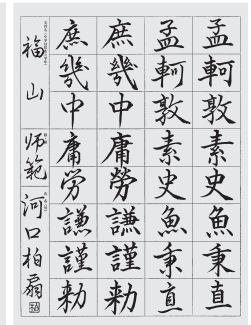 孟軻敦素史魚秉直
孟軻敦素史魚秉直
庶幾中庸勞謙謹勅
庶幾中庸労謙謹勅
福山
師範
河口柏扇